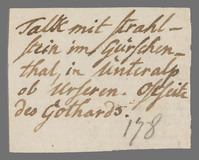 Talk mit strahl-
stein im Gürschen-
thal, in Unteralp
ob Urseren. Ostseite
des Gothards.
178